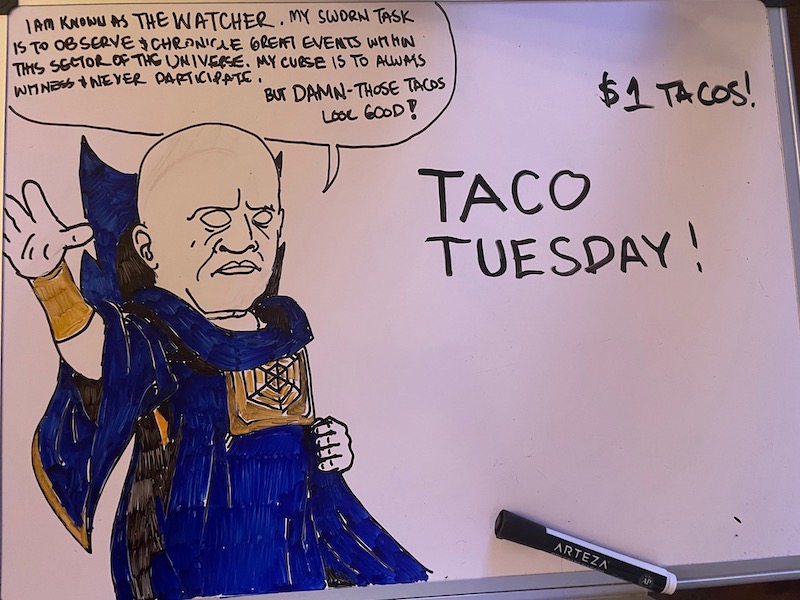 I AM KNOWN AS THE WATCHER. MY SWORN TASK
IS TO OBSERVE & CHRONICLE GREAT EVENTS WITHIN
THIS SECTOR OF THE UNIVERSE. MY CURSE IS TO ALWAYS
WITNESS & NEVER PARTICIPATE.
BUT DAMN-THOSE TACOS
LOOK GOOD!
$1 TACOS!
TACO
TUESDAY!
ARTEZA
AP